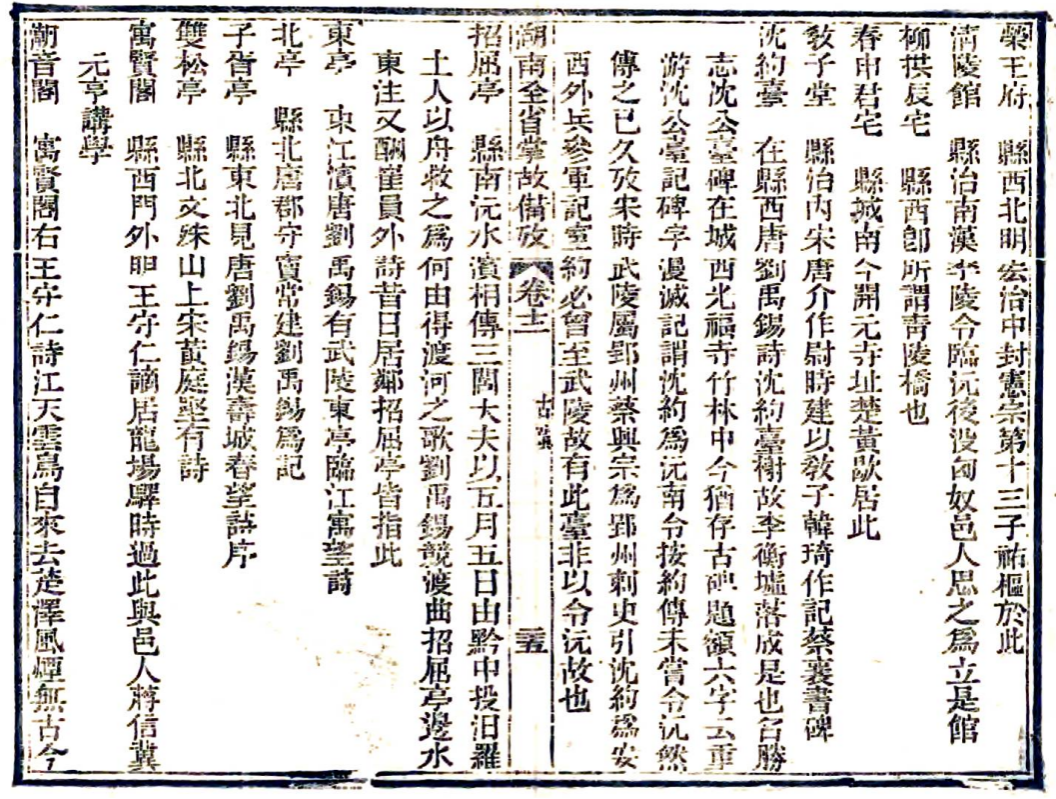 榮王府　縣西北明宏治中封憲宗第十三子祐樞於此
清陵館　縣治南漢李陵令臨沅後沒匈奴邑人思之為立是館
柳拱辰宅　縣西卽所謂靑陵橋也
春申君宅　縣城南今開元寺址楚黃歇居此
敎子堂　縣治內宋唐介作尉時建以敎子韓琦作記蔡襄書碑
沈約臺　在縣西唐劉禹錫詩沈約臺榭故李衡墟落成是也名勝
志沈公臺碑在城西北福寺竹林中今猶存古碑題額六字云重
游沈公臺記碑字漫滅記謂沈約爲沅南令按約傳未嘗令沅然
傳之已久攷宋時武陵屬郢州蔡興宗爲郢州刺史引沈約爲安
西外兵參軍記室約必曾至武陵故有此臺非以令沅故也
湖南全省掌故備攷　卷十二　古蹟　三五
招屈亭　縣南沅水濱相傳三閭大夫以五月五日由黔中投汨羅
土人以舟救之爲何由得渡河之歌劉禹錫競渡曲招屈亭邊水
東注又酬竇員外詩昔日居鄰招屈亭皆指此
東亭　東江濱唐劉禹錫有武陵東亭臨江寓望詩
北亭　縣北唐郡守竇常建劉禹錫爲記
子胥亭　縣東北見唐劉禹錫漢壽城春望詩序
雙松亭　縣北文殊山上宋黃庭堅有詩
寓賢閣　縣西門外明王守仁謫居龍場驛時過此與邑人蔣信冀
元亨講學
潮音閣　寓賢閣右王守仁詩江天雲鳥自來去楚澤風煙無古今